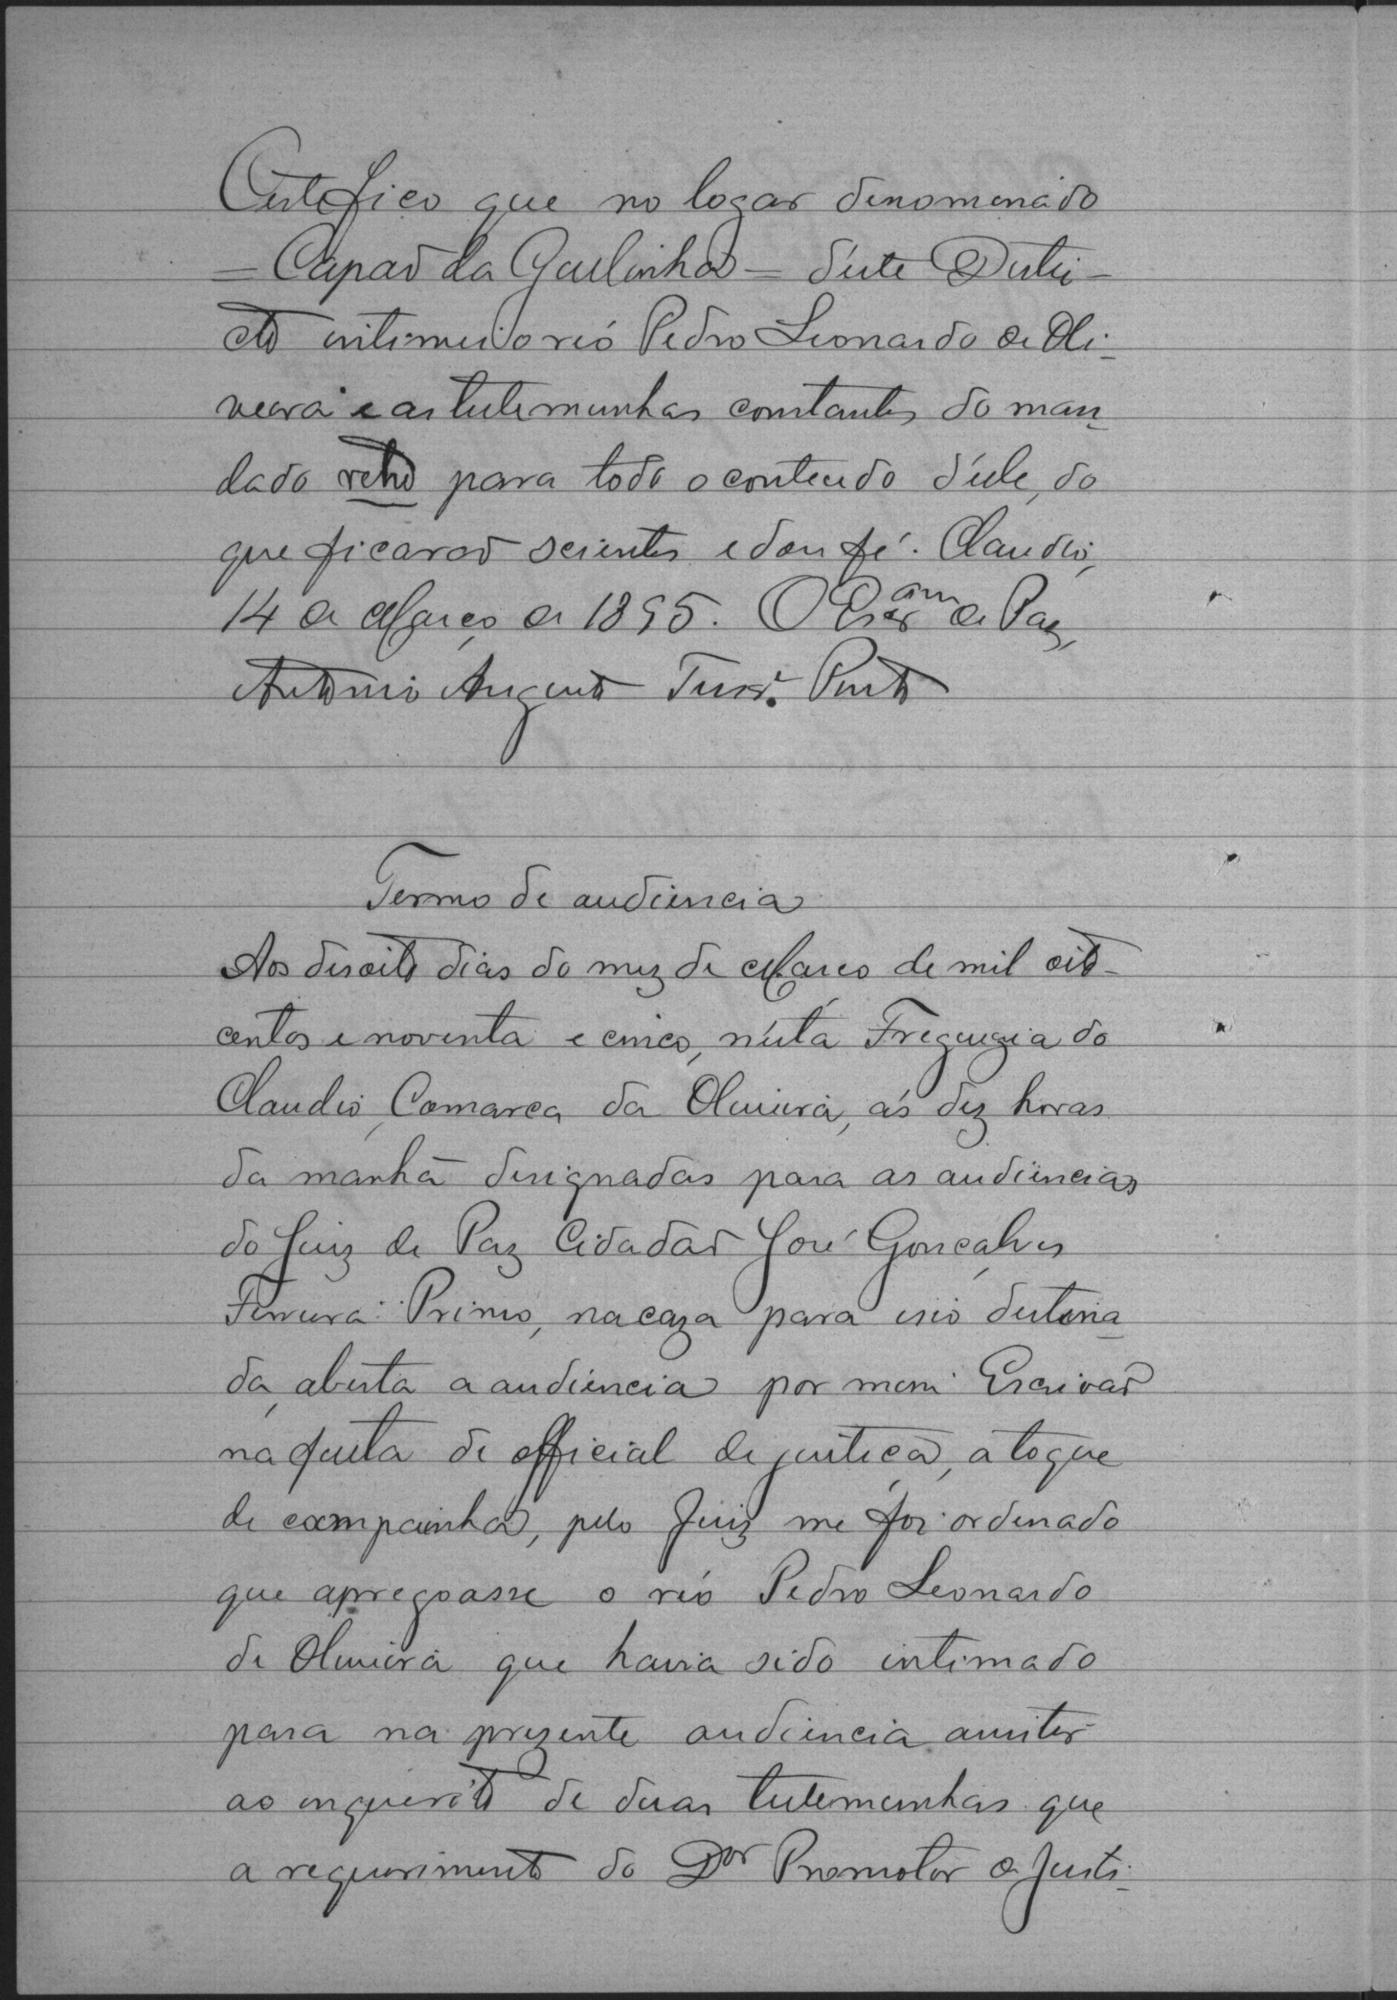 Certefico que no logar denomenado
= Capaõ da Gallinha = d'este Distri-
cto intimei o réo Pedro Leonardo de Oli-
veira e as testemunhas constantes do man-
dado retro para todo o conteudo d'elle, do
que ficaraõ scientes e dou fé. Claudio,
14 de Março de 1895. O Escram de Paz,
Antonio Augusto Teixr.ª Pinto
Termo de audiencia
Aos desoito dias do mez de Março de mil oito-
centos e noventa e cinco, n'esta Freguezia do
Claudio, Comarca da Oliveira, ás dez horas
da manhã designadas para as audiencias
do Juiz de Paz Cidadaõ José Gonçalves
Ferreira Primo, na caza para isso destina-
da, aberta a audiencia por mim Escrivaõ
na falta de official de justiça, a toque
de campainha, pelo Juiz me foi ordenado
que apregoasse o réo Pedro Leonardo
de Oliveira que havia sido intimado
para na prezente audiencia assistir
ao inquerito de duas testemunhas que
a requerimento do Dor Promotor de Justi-